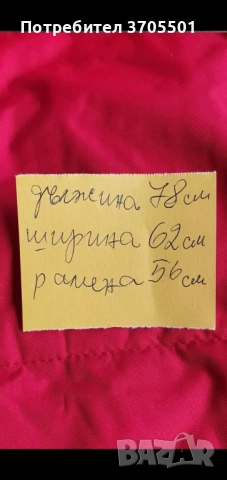 Потребител 3705501
дължина 78 см
ширина 62 см
рамена 56 см
BAZAR